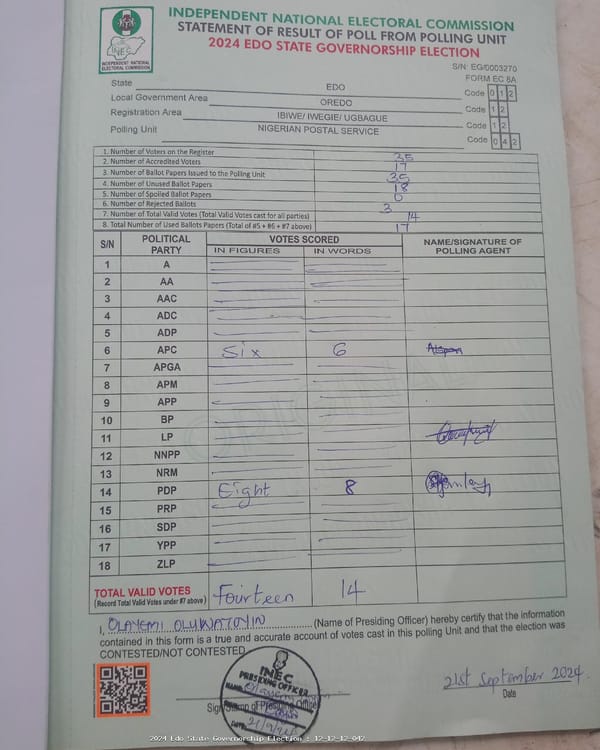 INDEPENDENT NATIONAL ELECTORAL COMMISSION
STATEMENT OF RESULT OF POLL FROM POLLING UNIT
2024 EDO STATE GOVERNORSHIP ELECTION
INEC
INDEPENDENT NATIONAL
ELECTORAL COMMISSION
S/N: EG/0003270
FORM EC 8A
State EDO Code 0 1 2
Local Government Area OREDO Code 1 2
Registration Area IBIWE/ IWEGIE/ UGBAGUE Code 1 2
Polling Unit NIGERIAN POSTAL SERVICE Code 0 4 2
1. Number of Voters on the Register 35
2. Number of Accredited Voters 17
3. Number of Ballot Papers Issued to the Polling Unit 35
4. Number of Unused Ballot Papers 18
5. Number of Spoiled Ballot Papers 0
6. Number of Rejected Ballots 3
7. Number of Total Valid Votes (Total Valid Votes cast for all parties) 14
8. Total Number of Used Ballots Papers (Total of #5 + #6 + #7 above) 17
S/N POLITICAL PARTY VOTES SCORED NAME/SIGNATURE OF POLLING AGENT
IN FIGURES IN WORDS
1 A
2 AA
3 AAC
4 ADC
5 ADP
6 APC Six 6
7 APGA
8 APM
9 APP
10 BP
11 LP
12 NNPP
13 NRM
14 PDP Eight 8
15 PRP
16 SDP
17 YPP
18 ZLP
TOTAL VALID VOTES Fourteen 14
(Record Total Valid Votes under #7 above)
I, OLAYEMI OLUWATOYIN (Name of Presiding Officer) hereby certify that the information
contained in this form is a true and accurate account of votes cast in this polling Unit and that the election was
CONTESTED/NOT CONTESTED
INEC
PRESIDING OFFICER
NAME:
DATE:
21st September 2024
Date
2024 Edo State Governorship Election : 12-12-12-042